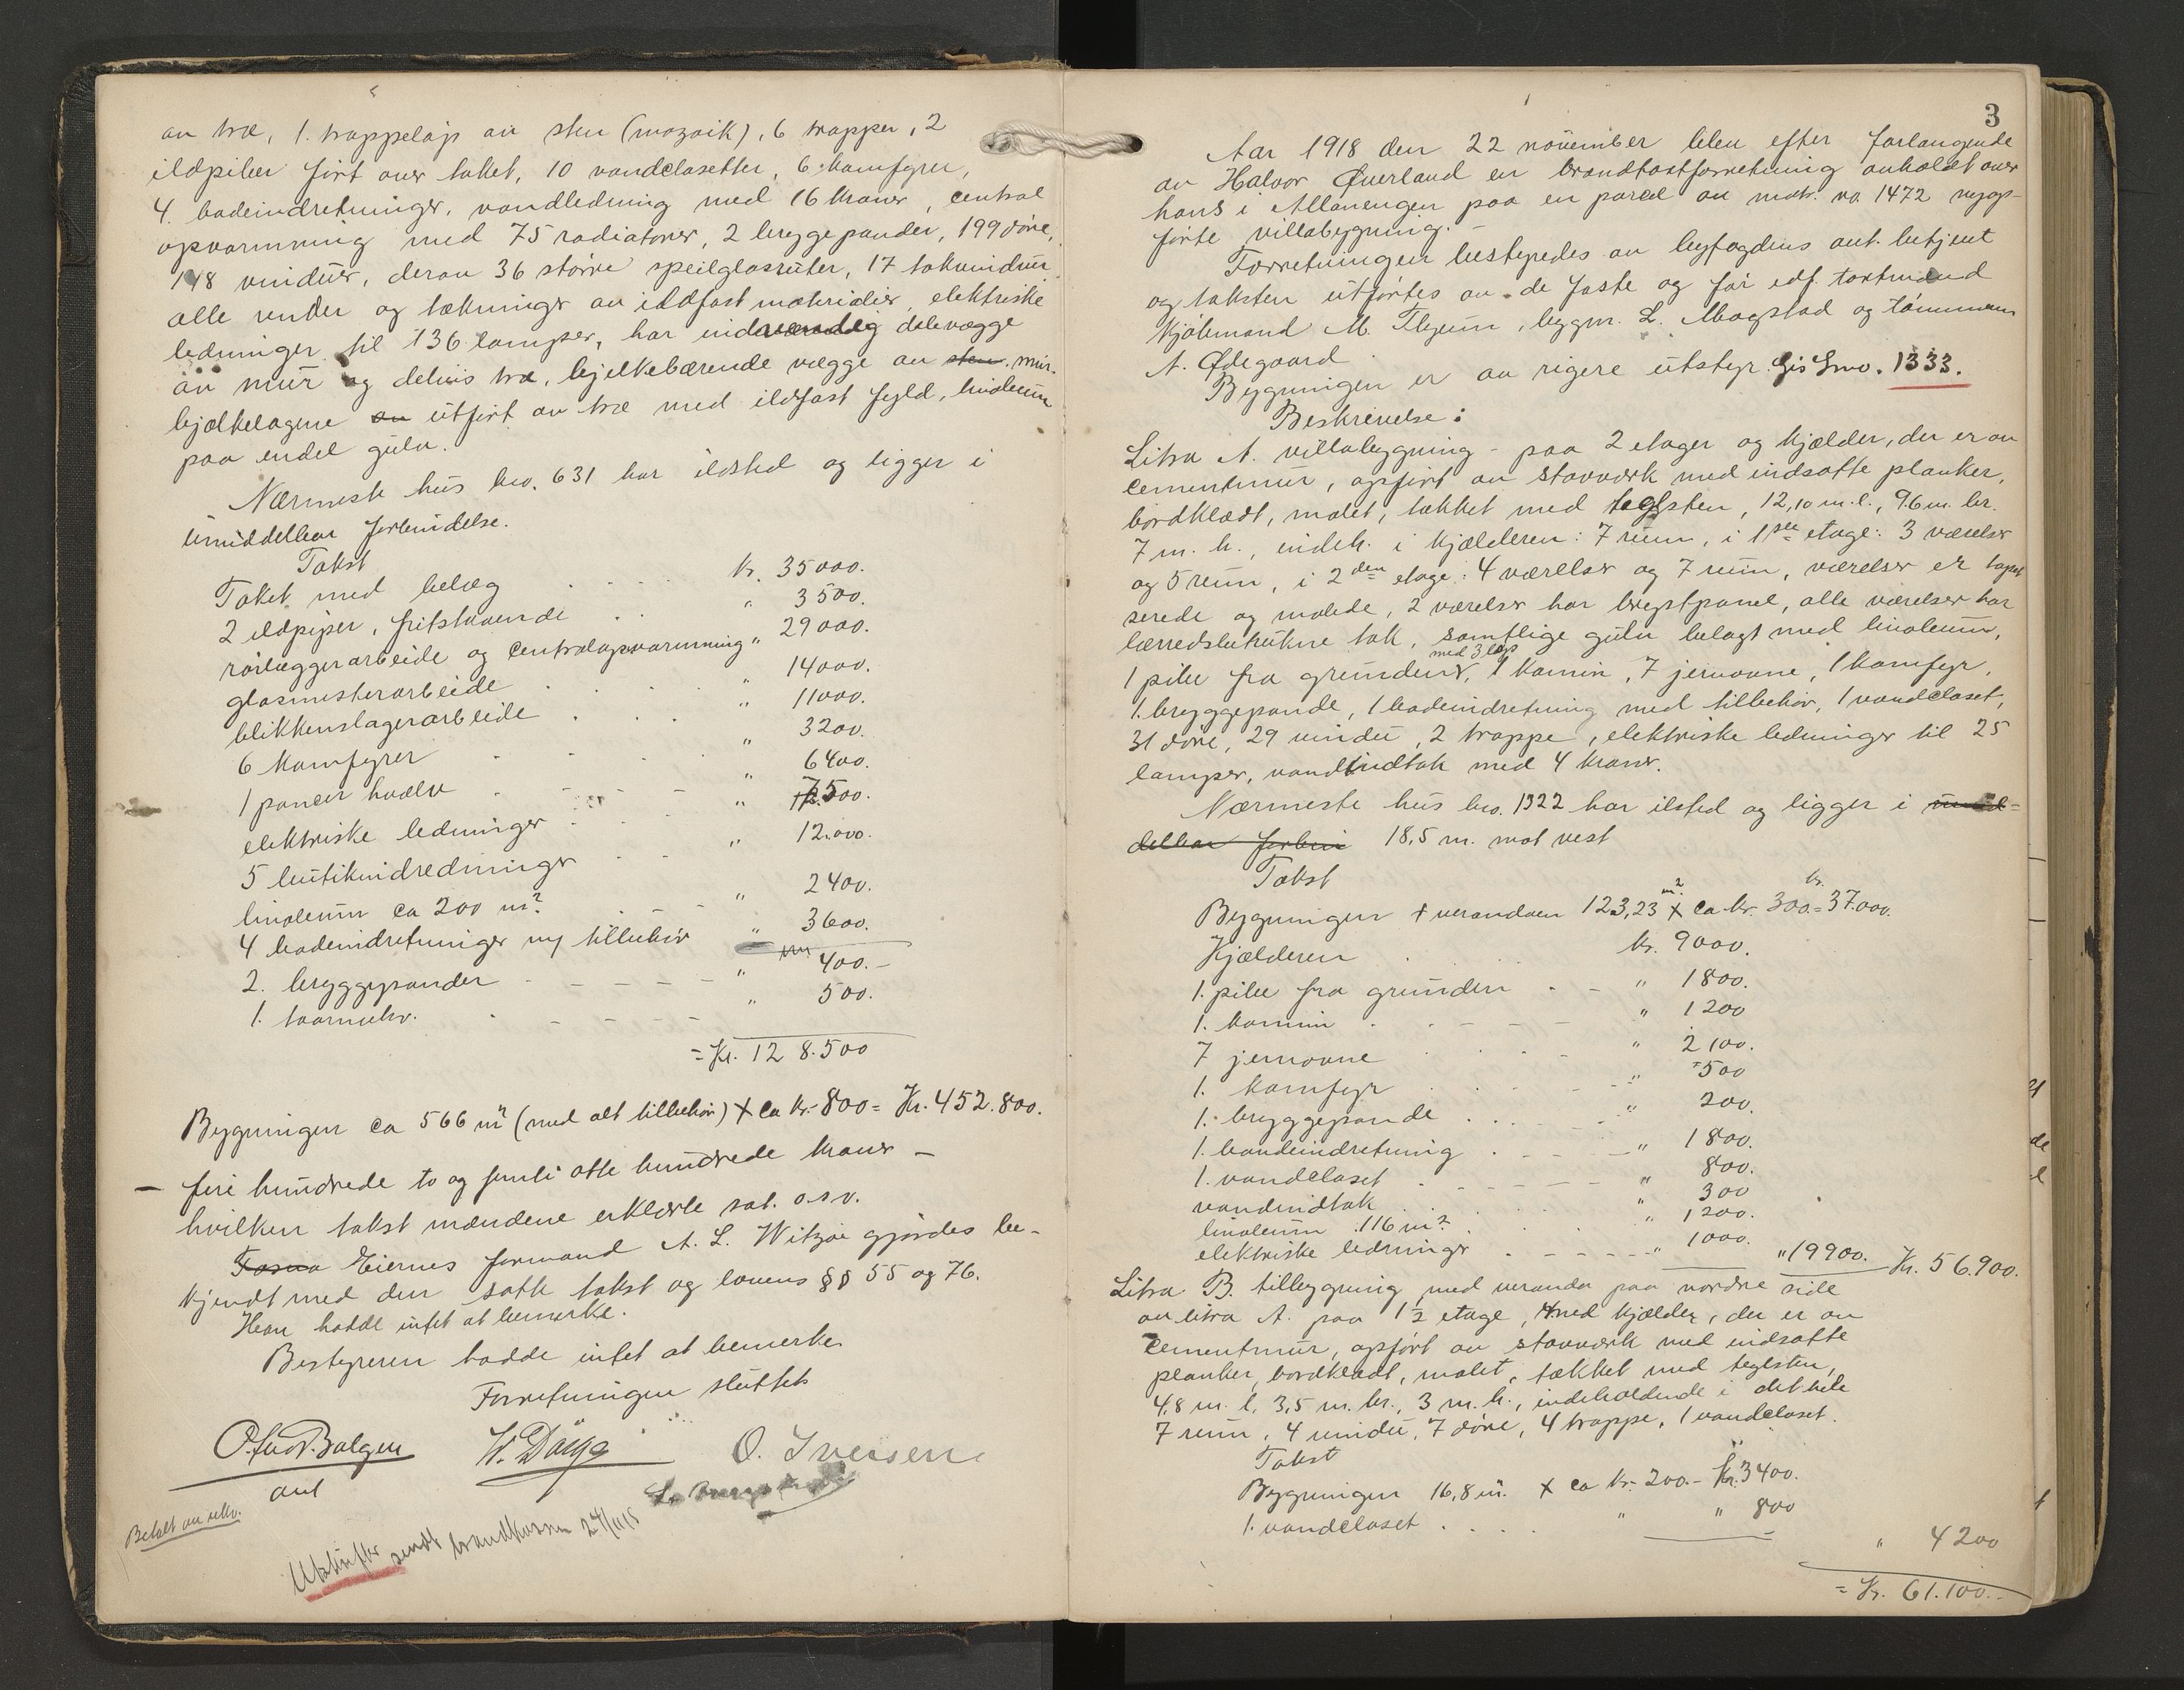 av træ, 1. trappeløp av sten (mozaik), 6 trapper, 2
ildpiber ført over taket, 10 vandclosetter, 6 komfyrer,
4. badeindretninger, vandledning med 16 kraner, central
opvarmning med 75 radiatorer, 2 bryggepander, 199 døre,
148 vinduer, derav 36 større speilglasruter, 17 takvinduer
alle render og tækninger av ildfast materialer, elektriske
ledninger til 136 lamper, har indvendig delevægge
av mur og delvis træ, bjelkebærende vægge av sten mur.
bjælkelagene av utført av træ med ildfast fyld, linoleum
paa endel gulv.
Nærmeste hus bro. 631 har ildsted og ligger i
umiddelbar forbindelse.
Takst
Taket med belæg kr. 35000.
2 ildpiper, fritstaaende " 3500.
rørlæggerarbeide og centralopvarmning " 29000.
glasmesterarbeide " 14000.
blikkenslagerarbeide " 11000.
6 komfyrer " 3200.
1 pancer hvælv " 6400.
elektriske ledninger " 7500.
5 butikindredninger " 12.000.
linoleum ca 200 m² " 2400.
4 badeindretninger m/ tilbehør " 3600.
2. bryggepander " 400.-
1. taarnuhr. " 500.
= Kr. 128.500
Bygningen ca 566 m² (med alt tilbehør) x ca kr. 800 = Kr. 452.800.
– fire hundrede to og femti otte hundrede kroner –
hvilken takst mændene erklærte sat. o.s.v.
Eiernes formand A. L. Witzøe gjordes be-
kjendt med den satte takst og lovens §§ 55 og 76.
Han hadde intet at bemerke.
Bestyreren hadde intet at bemerke.
Forretningen sluttet
O. Iversen
aut
Betalt av rekv.
Utskrifter sendt brandkassen 27/11 18
3
Aar 1918 den 22 november blev efter forlangende
av Halvor Øverland en brandtastforretning avholdt over
hans i Allanengen paa en parcel av matr. no. 1472 nyop-
førte villabygning. -
Forretningen bestyredes av byfogdens aut. betjent
og taksten utførtes av de faste og før edf. taxtmænd
Kjøbmand M. Thyum, bygm. L. Magstad og tømmerm
A. Ødegaard.
Bygningen er av rigere utstyr. Gis bro. 1333.
Beskrivelse:
Litra A. villabygning - paa 2 etager og kjælder, der er av
cementmur, opført av stavverk med indsatte planker,
bordklædt, malet, tækket med teglsten, 12,10 m. l., 9.6 m. br.
7 m. h., indeh. i kjælderen: 7 rum, i 1ste etage: 3 værelser
og 5 rum, i 2den etage: 4 værelser og 7 rum, værelser er tapet
serede og malede, 2 værelser har brystpanel, alle værelser har
lærredsbetrukne tak, samtlige gulv belagt med linoleum,
med 3 løp
1 pibe fra grunden, 1 kamin, 7 jernovne, 1 komfyr,
1. bryggepande, 1 badeindretning med tilbehør, 1 vandcloset,
31 døre, 29 vindu, 2 trappe, elektriske ledninger til 25
lamper, vandindtak med 4 kraner.
Nærmeste hus bro. 1322 har ilsted og ligger i umid-
delbar forbin 18,5 m. mot vest
Takst
Bygningen + verandaen 123,23 m² x ca kr. 300. = kr. 37.000.
Kjælderen kr. 9000.
1. pibe fra grunden " 1800.
1. kamin " 1200
7 jernovne " 2100.
1. komfyr " 500
1. bryggepande " 200.
1. bandeindretning " 1800.
1. vandcloset " 800.
vandindtak " 300
linoleum 116 m² " 1200.
elektriske ledninger " 1000. " 19900. Kr. 56.900.
Litra B. tilbygning med veranda paa nordre side
av litra A. paa 1½ etage, med kjælder, der er av
cementmur, opført av stavverk med indsatte
planker, bordklædt, malet, tækket med teglsten,
4,8 m. l. 3,5 m. br., 3 m. h., indeholdende i det hele
7 rum, 4 vindu, 7 døre, 4 trappe, 1 vandcloset.
Takst
Bygningen 16,8 m². x ca kr. 200.- Kr. 3400.
1. vandcloset " " 800
" 4200
= Kr. 61.100.-